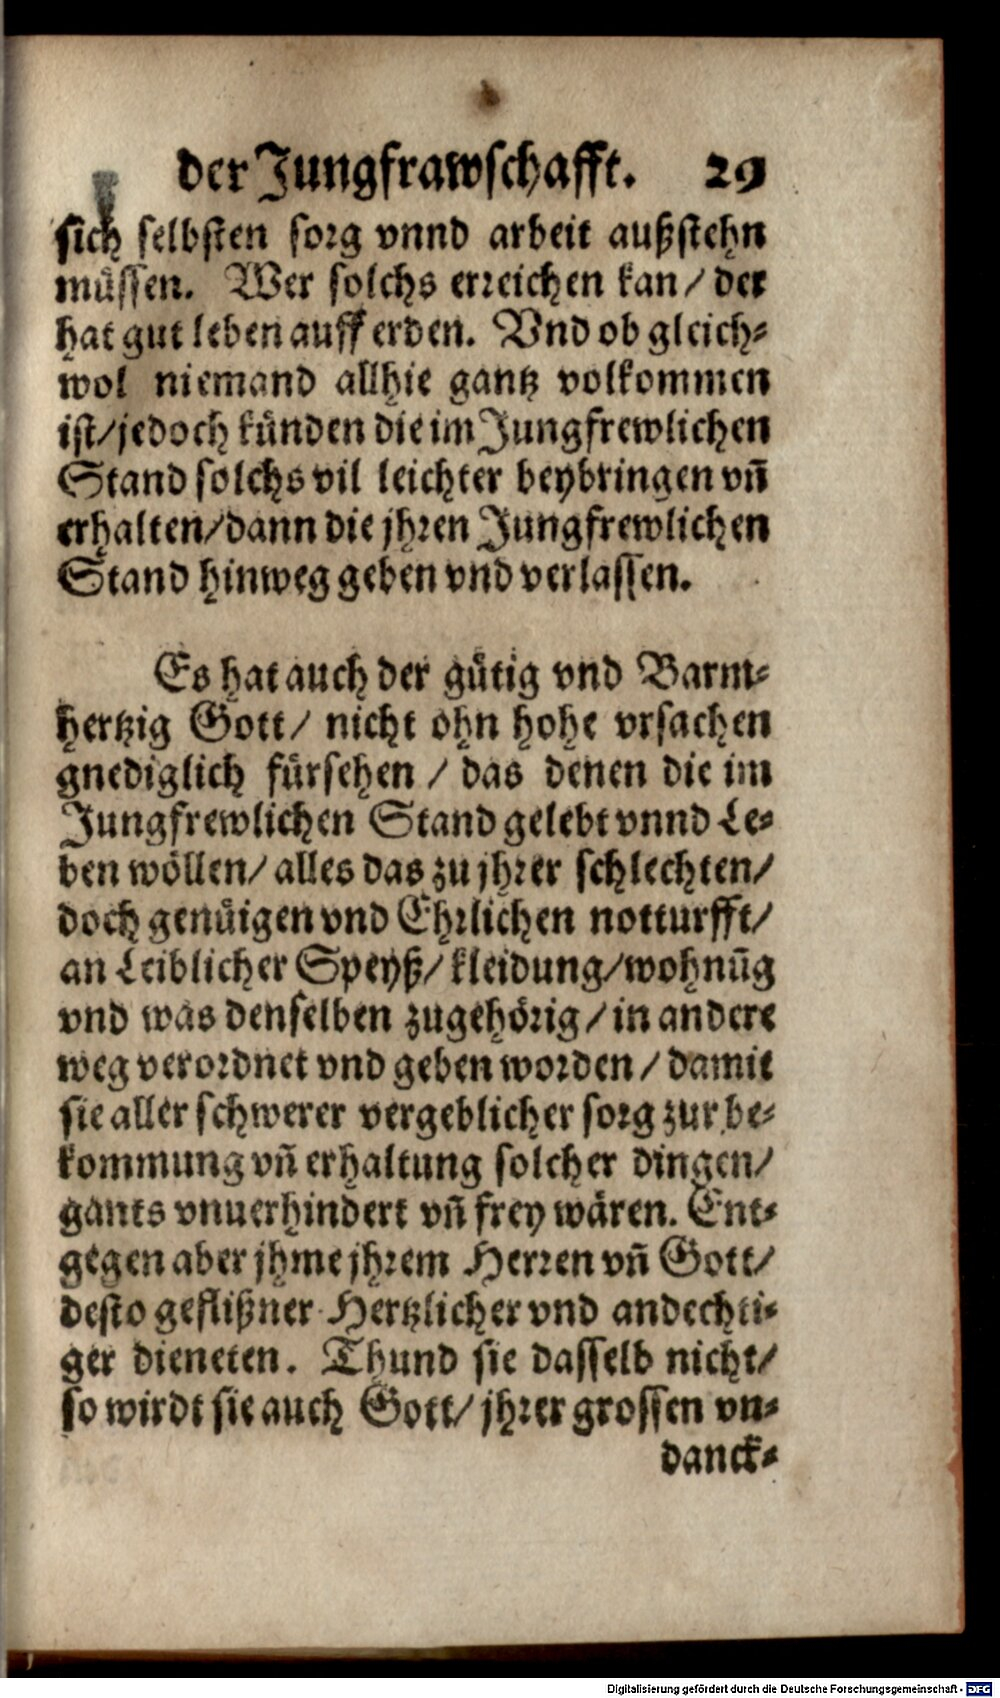 der Jungfrawschafft. 29
sich selbsten sorg vnnd arbeit außstehn
müssen. Wer solchs erreichen kan/ der
hat gut leben auff erden. Vnd ob gleich-
wol niemand allhie gantz volkommen
ist/ jedoch künden die im Jungfrewlichen
Stand solchs vil leichter beybringen vñ
erhalten/ dann die jhren Jungfrewlichen
Stand hinweg geben vnd verlassen.
Es hat auch der gütig vnd Barm-
hertzig Gott/ nicht ohn hohe vrsachen
gnediglich fürsehen / das denen die im
Jungfrewlichen Stand gelebt vnnd Le-
ben wöllen/ alles das zu jhrer schlechten/
doch genüigen vnd Ehrlichen notturfft/
an Leiblicher Speyß/ kleidung/ wohnũg
vnd was denselben zugehörig/ in andere
weg verordnet vnd geben worden/ damit
sie aller schwerer vergeblicher sorg zur be-
kommung vñ erhaltung solcher dingen/
gants vnuerhindert vñ frey wären. Ent-
gegen aber jhme jhrem Herren vñ Gott/
desto geflißner Hertzlicher vnd andechti-
ger dieneten. Thund sie dasselb nicht/
so wirdt sie auch Gott/ jhrer grossen vn-
danck-
Digitalisierung gefördert durch die Deutsche Forschungsgemeinschaft - DFG